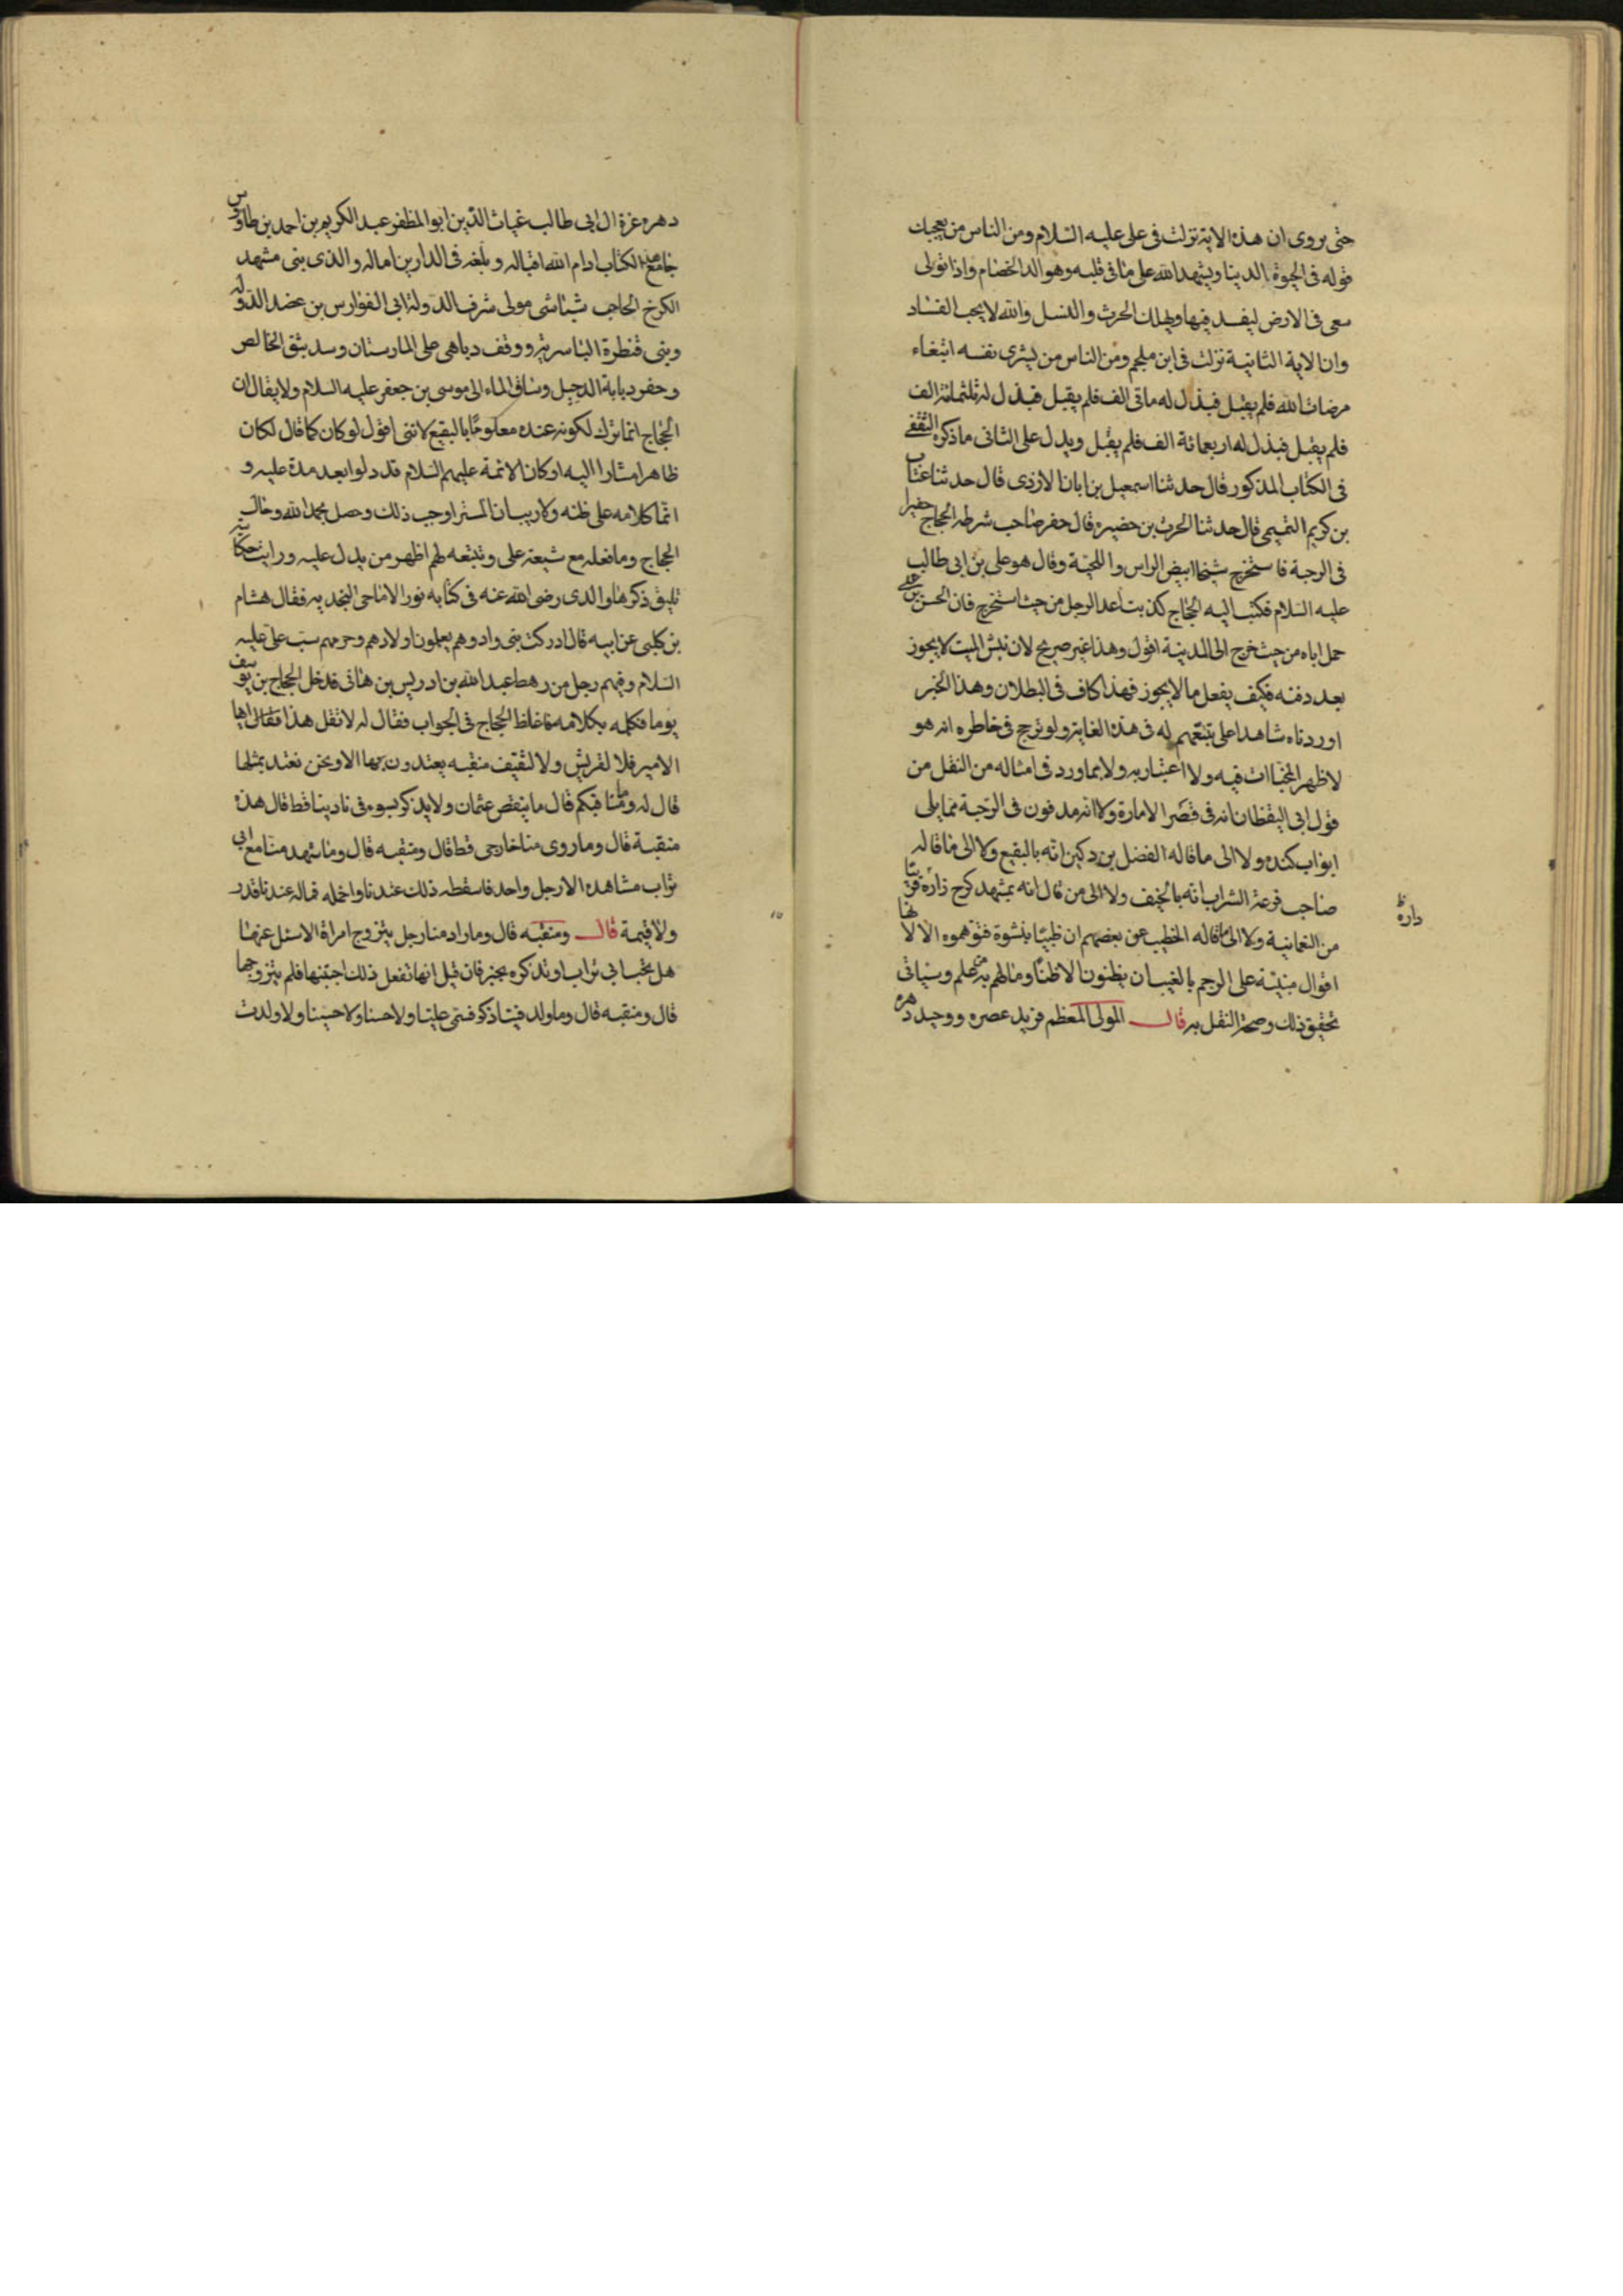 حتى يروى ان هذه الاية نزلت فى على عليه السلام ومن الناس من يعجبك
قوله فى الحيوة الدينا ويشهد الله على ما فى قلبه وهو الد الخصام واذا تولى
سعى فى الارض ليفسد فيها ويهلك الحرث والنسل والله لا يحب الفساد
وان الاية الثانية نزلت فى ابن ملجم ومن الناس من يشرى نفسه ابتغاء
مرضات الله فلم يقبل فبذل له ماتى الف فلم يقبل فبذل له ثلثمائة الف
فلم يقبل فبذل له اربعمائة الف فلم يقبل ويدل على الثانى ما ذكره الثقفى
فى الكتاب المذكور قال حدثنا اسمعيل بن ابان الازدى قال حدثنا عتاب
بن كريم التميمى قال حدثنا الحرث بن حضيرة قال حفر صاحب شرطه الحجاج حفيرا
فى الرحبة فاستخرج شيخا ابيض الراس واللحية وقال هو على بن ابى طالب
عليه السلام فكتب اليه الحجاج كذبت اعد الرجل من حيث استخرج فان الحسن بن على
حمل اباه من حيث خرج الى المدينة اقول وهذا غير صريح لان نبش الميت لا يجوز
بعد دفنه فكيف يفعل ما لا يجوز فهذا كاف فى البطلان وهذا الخبر
اوردناه شاهدا على تتبعهم له فى هذه الغاية ولو ترجح فى خاطره انه هو
لاظهر المخبات فيه ولا اعتبار به ولا بما ورد فى امثاله من النقل من
قول ابى اليقظان انه فى قصر الامارة ولا انه مدفون فى الرحبة مما يلى
ابواب كنده ولا الى ما قاله الفضل بن دكين انه بالبقيع ولا الى ما قاله
صاحب فرعة الشراب انه بالخيف ولا الى من قال انه بمشهد كرخ زاره قريبا
دارة
من النعمانية ولا الى ما قاله الخطيب عن بعضهم ان طيئا نبشوة فتوهموه الا لا لها
اقوال مبنية على الرجم بالغيب ان يظنون الا ظنا وما لهم به من علم وسياتى
تحقيق ذلك وصحة النقل به قال المولى المعظم فريد عصره ووحيد دهره
دهره غرة ال ابى طالب غياث الدين ابو المظفر عبد الكريم بن احمد بن طاوس
جامع هذا الكتاب ادام الله اقباله وبلغه فى الدارين اماله والذى بنى مشهد
الكرخ الحاجب شباشى مولى شرف الدولة ابى الفوارس بن عضد الدولة
وبنى قنطرة الياسرية ووقف دباهى على المارستان وسد بثق الخالص
وحفر دبابة الدجيل وساق الماء الى موسى بن جعفر عليه السلام ولا يقال ان
الحجاج انما ترك لكونه عنده معلوما بالبقيع لاننى اقول لو كان كما قال لكان
ظاهرا مشارا اليه او كان الائمة عليهم السلام قد دلوا بعد مدة عليه و
انما كلامه على ظنه ولا ريب ان المستر اوجب ذلك وحصل بحمد الله وحال
الحجاج وما فعله مع شيعة على وتتبعه لهم اظهر من يدل عليه ورايت حكاية
تليق ذكرها والدى رضى الله عنه فى كتابه نور الاقاحى النجديه فقال هشام
بن كلبى عن ابيه قال ادركت بنى واد وهم يعلمون اولادهم وحرمهم سب على عليه
السلام وفيهم رجل من رهط عبد الله بن ادريس بن هانى فدخل الحجاج بن يوسف
يوما فكلمه بكلامه فاغلظ الحجاج فى الجواب فقال له لا تقل هذا فقال ايها
الامير فلا لقريش ولا لثقيف منقبه يعتدون بها الا ونحن نعتد بمثلها
قال له وما مناقبكم قال ما ينقص عثمان ولا يذكر بسوء فى نادينا قط قال هذه
منقبة قال وما روى منا خارجى قط قال ومنقبه قال وما شهد منا مع ابى
تراب مشاهده الا رجل واحد فاسقطه ذلك عندنا واخمله فماله عندنا قدر
ولا قيمة قال ومنقبه قال وما اراد منا رجل يتزوج امراة الا سئل عنها
هل تحب ابى تراب او تذكره بخير فان قيل انها تفعل ذلك اجتنبها فلم يتزوجها
قال ومنقبه قال وما ولد فينا ذكر فسمى عليا ولا حسنا ولا حسينا ولا ولدت